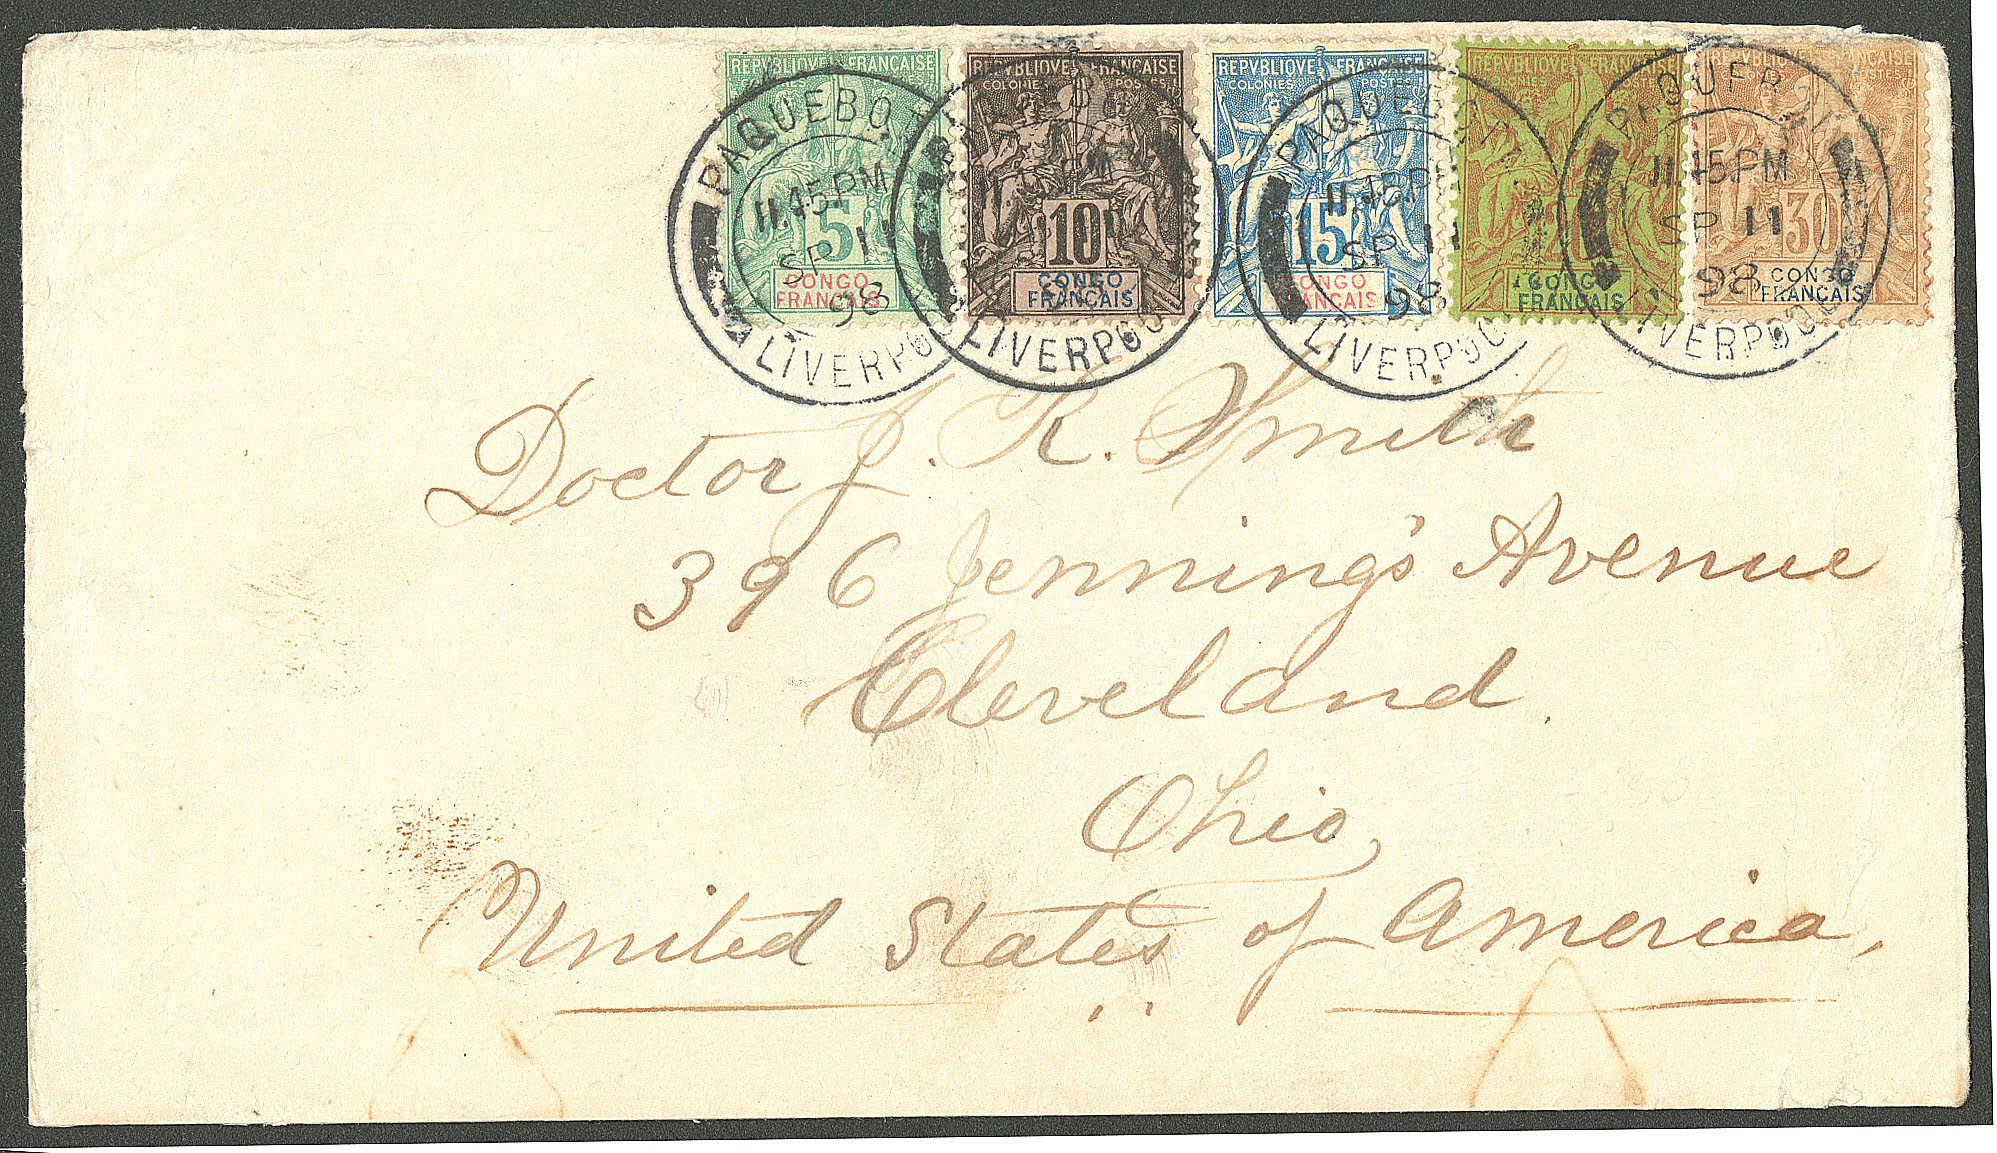 REPVBLIQVE FRANÇAISE
COLONIES POSTES
5
CONGO
FRANÇAIS
REPVBLIQVE FRANÇAISE
COLONIES POSTES
10
CONGO
FRANÇAIS
REPVBLIQVE FRANÇAISE
COLONIES POSTES
15
CONGO
FRANÇAIS
REPVBLIQVE FRANÇAISE
20
CONGO
FRANÇAIS
REPVBLIQVE FRANÇAISE
COLONIES POSTES
30
CONGO
FRANÇAIS
PAQUEBOT
11.45 PM
SP 11
98
LIVERPOOL
LIVERPOOL
PAQUEBOT
11.45 PM
SP 11
98
LIVERPOOL
PAQUEBOT
11.45 PM
SP 11
98
LIVERPOOL
Doctor J. R. Smith
396 Jenning's Avenue
Cleveland.
Ohio,
United States of America,